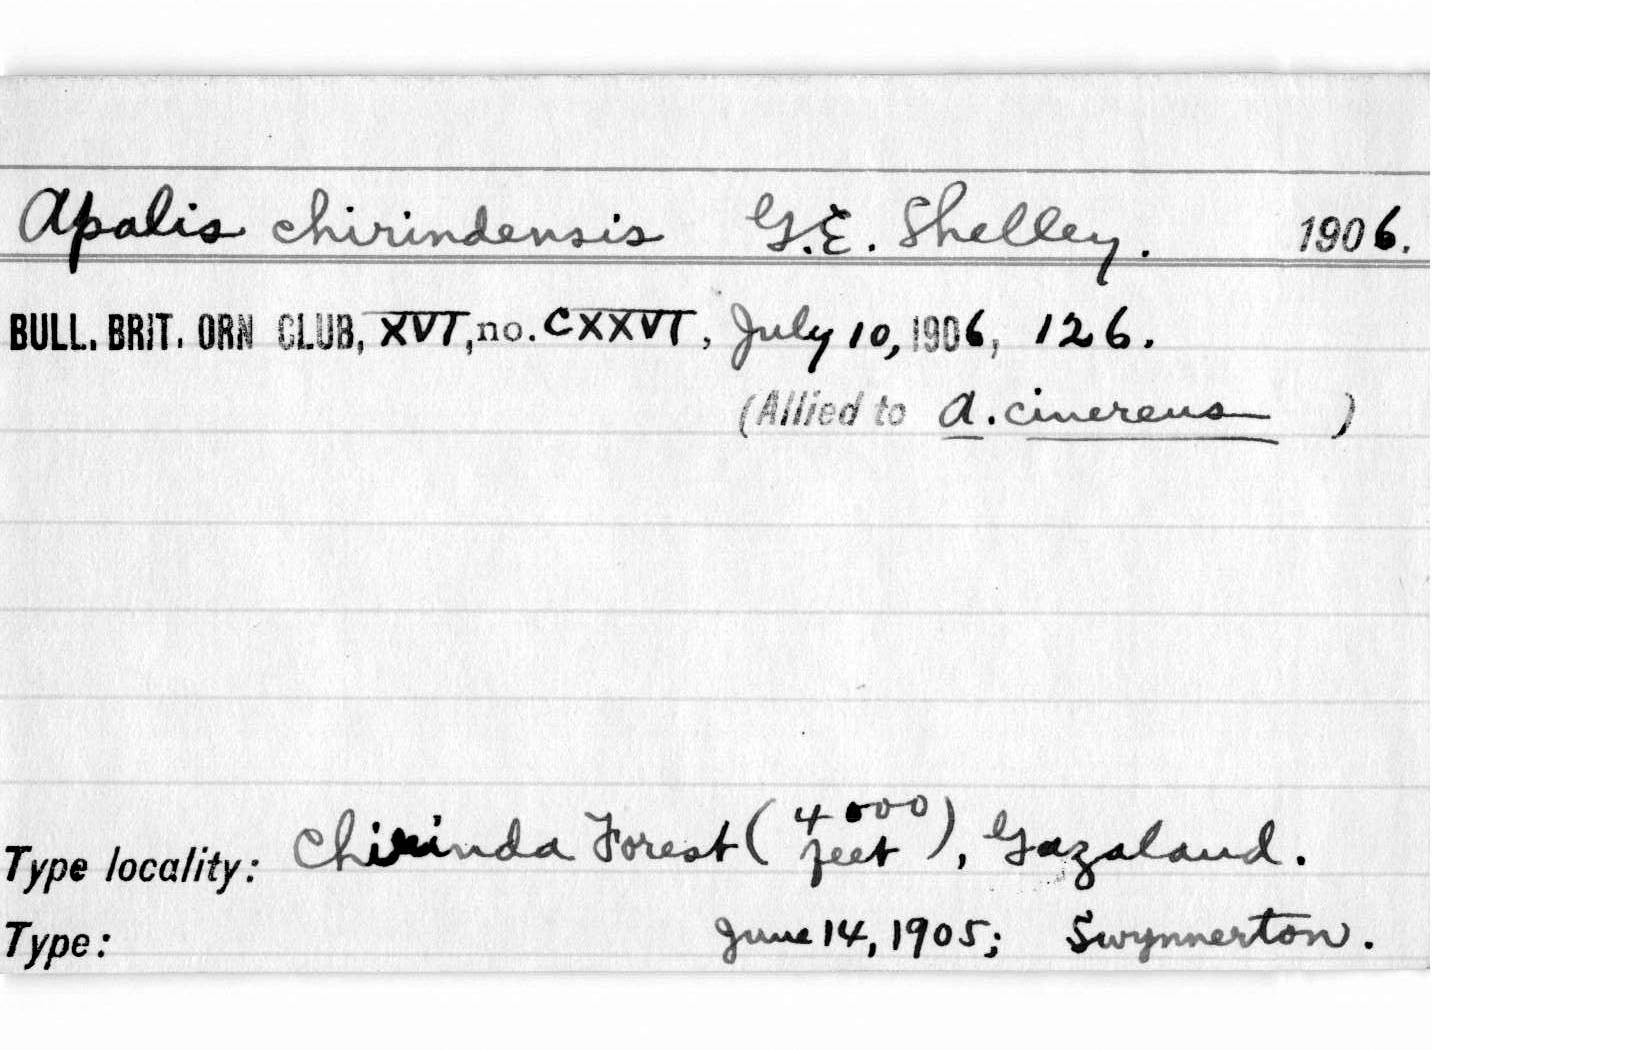 Apalis chirindensis G.E. Shelley. 1906.
BULL. BRIT. ORN CLUB, XVI, no. CXXVI, July 10, 1906, 126.
(Allied to A. cinereus )
Type locality: Chirinda Forest ( 4000 feet ), Gazaland.
Type: June 14, 1905; Swynnerton.